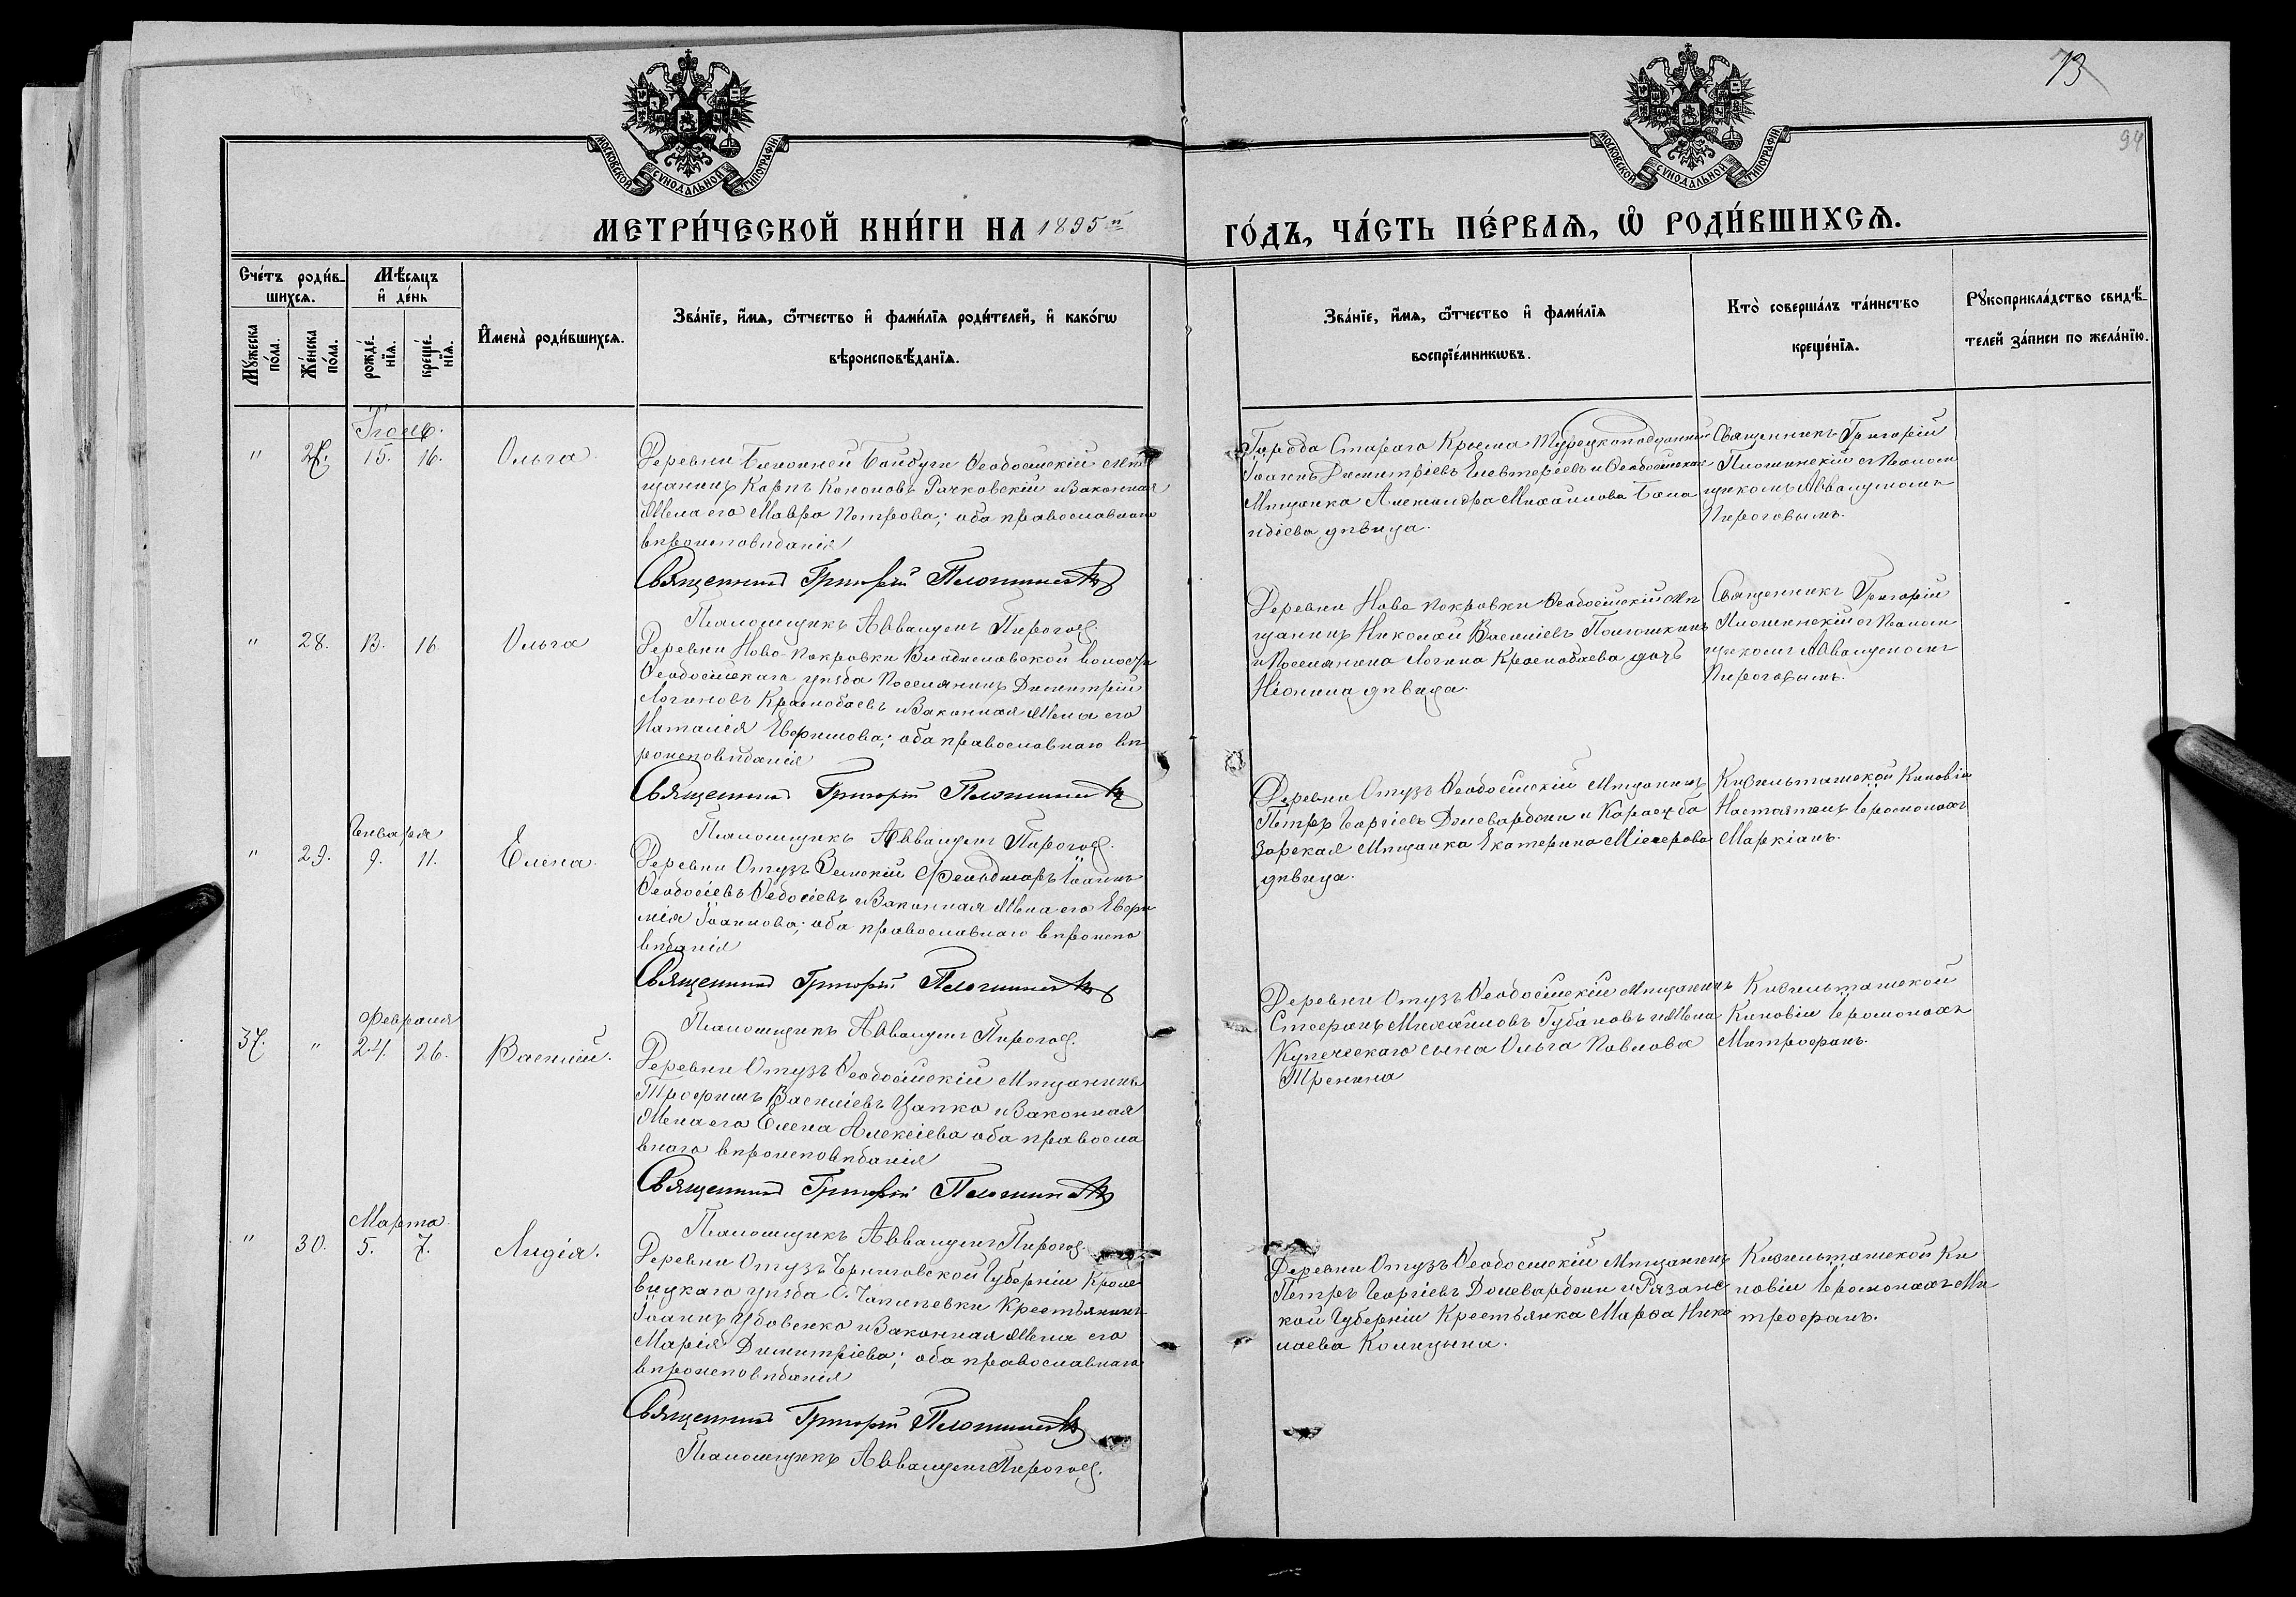 73
94
МОСКОВСКОЙ СУНОДАЛЬНОЙ ТИПОГРАФІИ
МОСКОВСКОЙ СУНОДАЛЬНОЙ ТИПОГРАФІИ
МЕТРИ́ЧЕСКОЙ КНИ́ГИ НА 1895й
ГО́ДЪ, ЧА́СТЬ ПЕ́РВАѦ, Ѡ҆ РОДИ́ВШИХСѦ.
Сче́тъ роди́в-
шихсѧ.
Мѣ́сѧцъ
и҆ де́нь
Мꙋ́жеска
по́ла.
Же́нска
по́ла.
рожде́-
нїѧ.
креще́-
нїѧ.
И҆мена̀ роди́вшихсѧ.
Зва́нїе, и҆́мѧ, ѻ҆́тчество и҆ фами́лїѧ роди́телей, и҆ како́гѡ
вѣроисповѣ́данїѧ.
Зва́нїе, и҆́мѧ, ѻ҆́тчество и҆ фами́лїѧ
воспрїе́мникѡвъ.
Кто̀ соверша́лъ та́инство
креще́нїѧ.
Рꙋкоприкла́дство свидѣ́-
телей за́писи по жела́нїю.
Іюль.
" 27. 15. 16. Ольга
Деревни Ближней Байбуги Ѳеодосійскій мѣ
щанинъ Карпъ Кононовъ Рачковскій и законная
жена его Мавра Петрова; оба православнаго
вѣроисповѣданія
Священникъ Григорій Пложинскій
Псаломщикъ Аввакумъ Пироговъ.
Города Стараго Крыма Турецкоподданный
Іоаннъ Димитріевъ Елевтеріевъ и Ѳеодосійская
Мѣщанка Александра Михайлова
дѣвица.
Священникъ Григорій
Пложинскій съ Псалом
щикомъ Аввакумомъ
Пироговымъ.
" 28. 13. 16. Ольга
Деревни Ново-Покровки Владиславской волости
Ѳеодосійскаго уѣзда Поселянинъ Димитрій
Логиновъ Краснобаевъ и законная жена его
Наталія Евфимова; оба православнаго вѣ
роисповѣданія
Священникъ Григорій Пложинскій
Псаломщикъ Аввакумъ Пироговъ.
Деревни Ново Покровки Ѳеодосійскій мѣ
щанинъ Николай Василіевъ Полюшкинъ
и Поселянина Логина Краснобаева дочь
Неонила дѣвица.
Священникъ Григорій
Пложинскій съ Псалом
щикомъ Аввакумомъ
Пироговымъ.
Января
" 29. 9. 11. Елена.
Деревни Отузъ Земскій Фельдшеръ Іоаннъ
Ѳеодосіевъ Ѳедосіевъ и законная жена его Евфи
мія Іоаннова; оба православнаго вѣроиспо
вѣданія
Священникъ Григорій Пложинскій
Псаломщикъ Аввакумъ Пироговъ.
Деревни Отузъ Ѳеодосійскій Мѣщанинъ
Петръ Георгіевъ и Карасуба
зарская Мѣщанка Екатерина
дѣвица.
Кизильташской Киновіи
Настоятель Іеромонахъ
Маркіанъ.
Февраля
37. " 24. 26. Василій.
Деревни Отузъ Ѳеодосійскій Мѣщанинъ
Трофимъ Василіевъ Цапко и законная
жена его Елена Алексіева оба правосла
внаго вѣроисповѣданія
Священникъ Григорій Пложинскій
Псаломщикъ Аввакумъ Пироговъ.
Деревни Отузъ Ѳеодосійскій Мѣщанинъ
Стефанъ Михайловъ Губановъ и жена
Купеческаго сына Ольга Павлова
Тренина
Кизильташской
Киновіи Іеромонахъ
Митрофанъ.
Марта.
" 30. 5. 7. Лидія.
Деревни Отузъ Черниговской Губерніи Кроле
вецкаго уѣзда С. Чапліевки Крестьянинъ
Іоаннъ Удовенко и законная жена его
Марія Димитріева; оба православнаго
вѣроисповѣданія
Священникъ Григорій Пложинскій
Псаломщикъ Аввакумъ Пироговъ.
Деревни Отузъ Ѳеодосійскій Мѣщанинъ
Петръ Георгіевъ и Рязанс
кой Губерніи Крестьянка Марѳа Нико
лаева
Кизильташской Ки
новіи Іеромонахъ Ми
трофанъ.